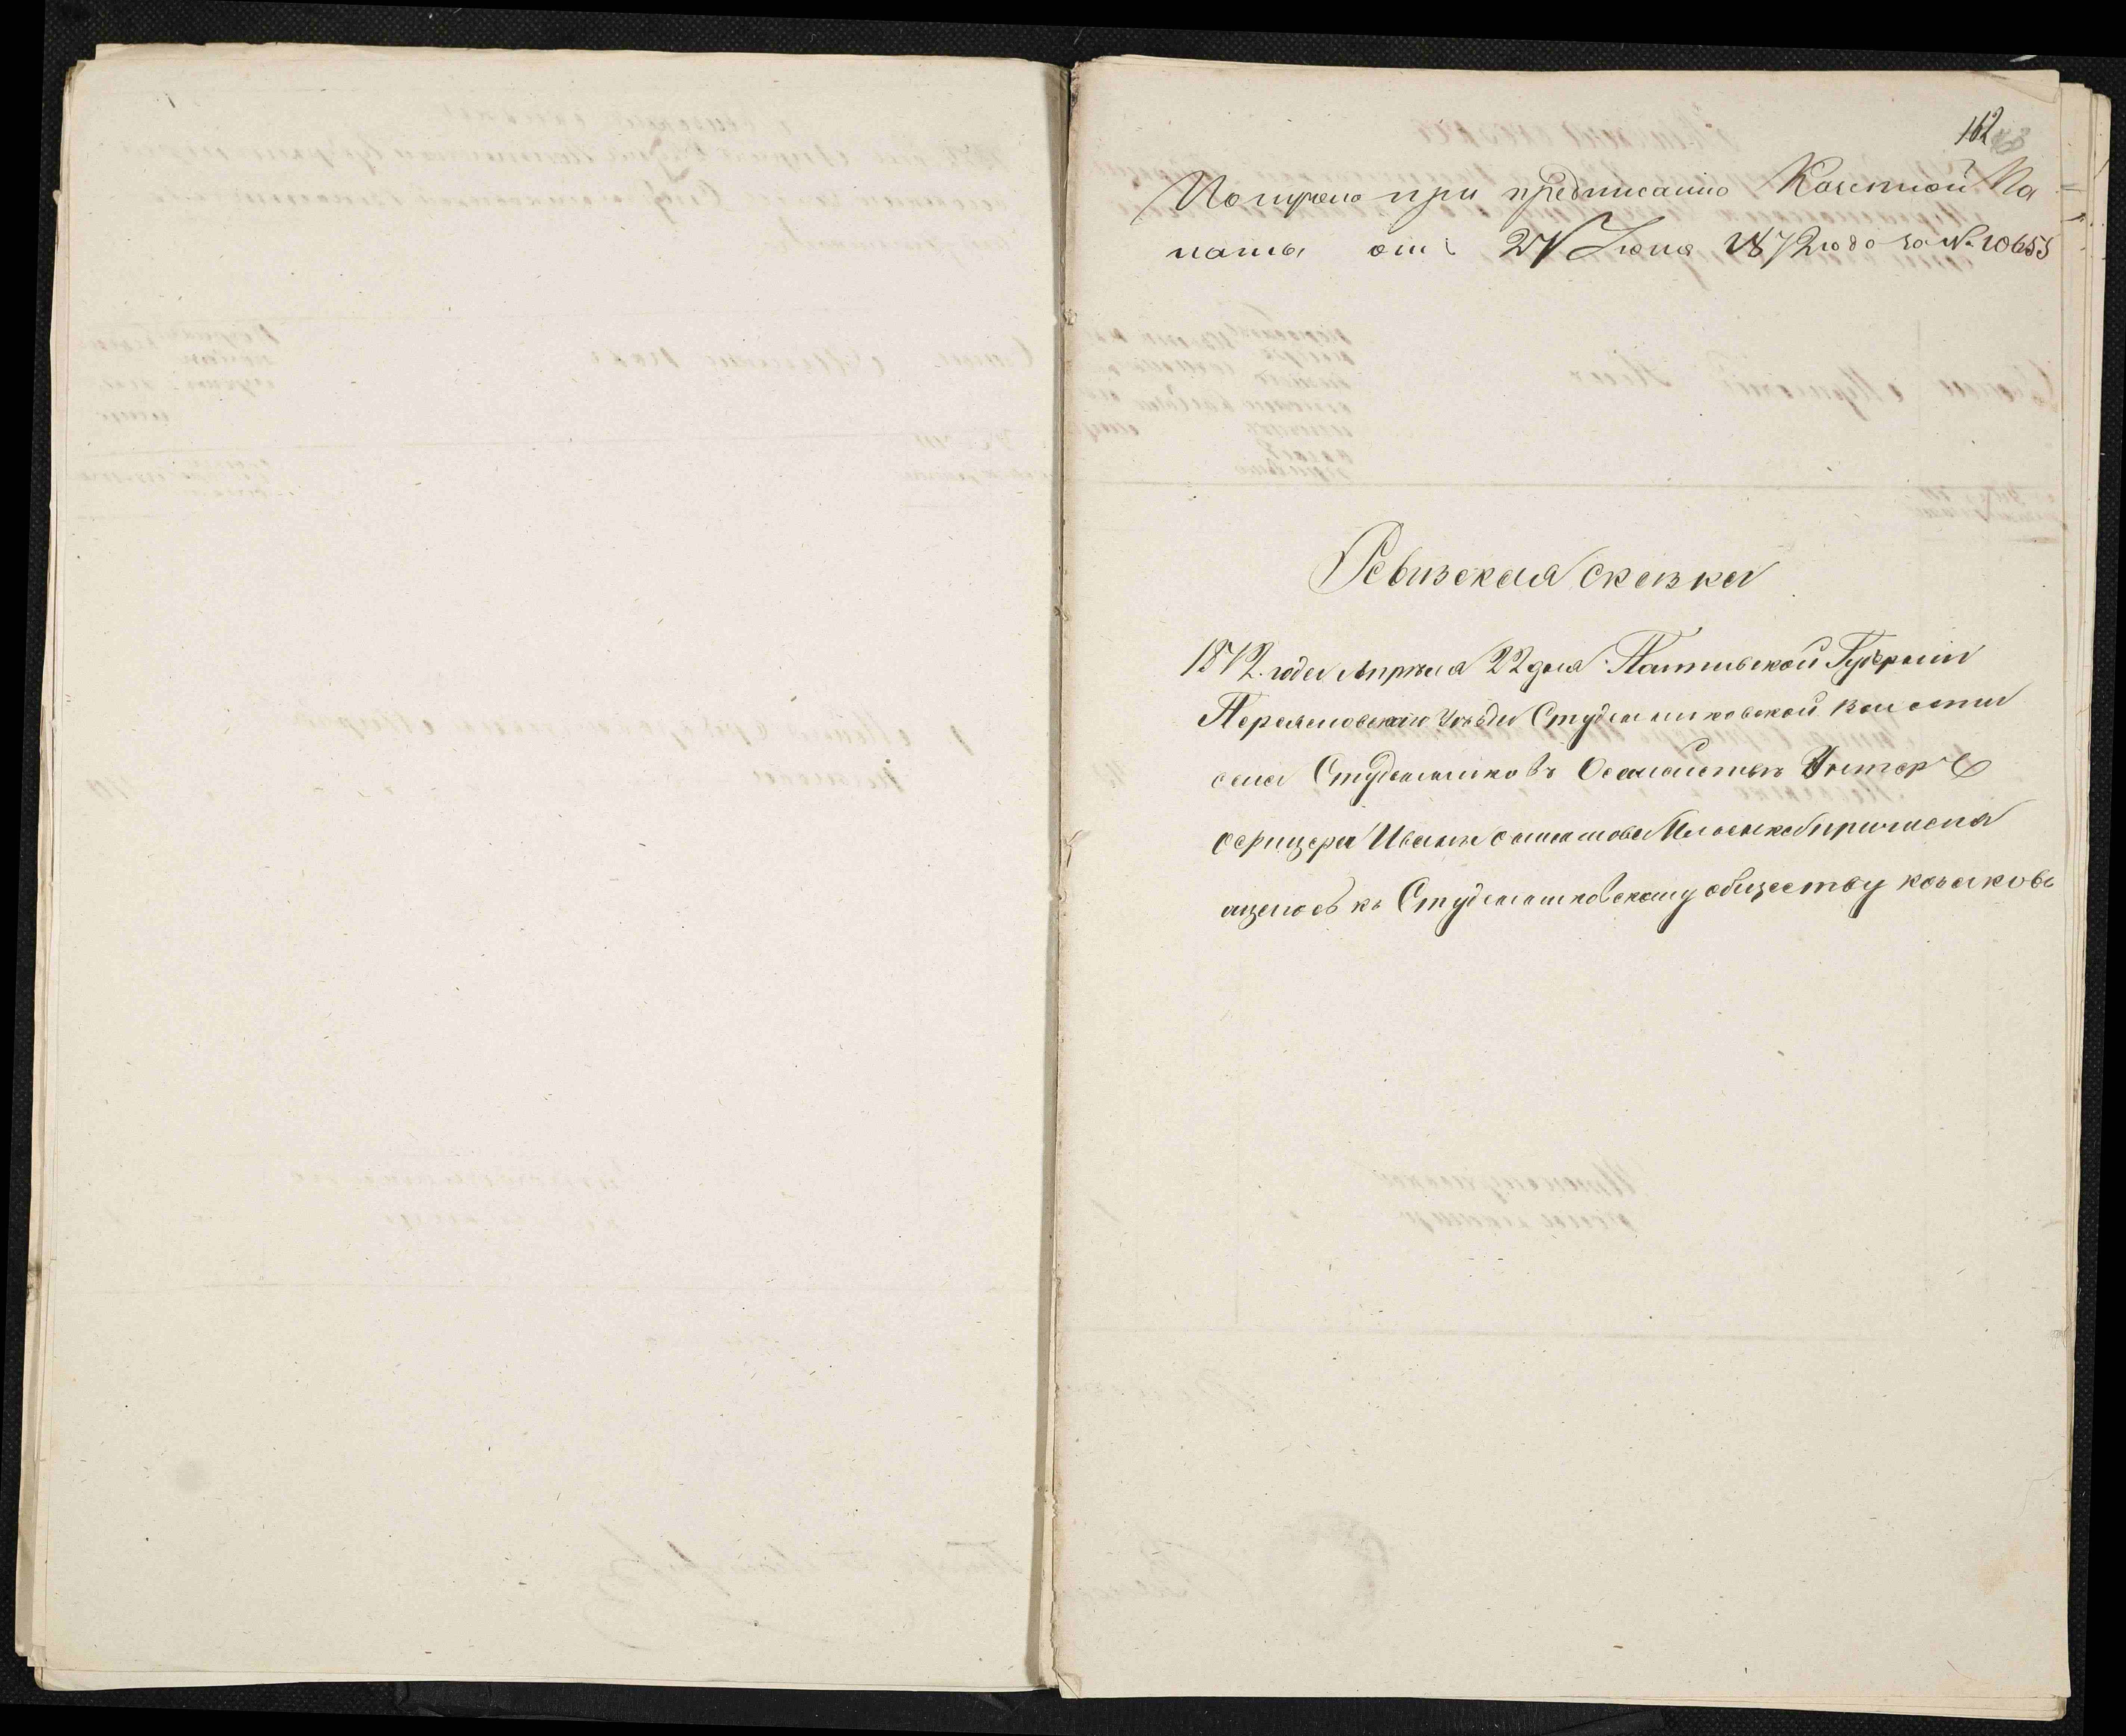 162
Получено при предписании Казенной Па=
латы отъ 27 Июня 1872 года за № 10655
Ревизская сказка
1872. года Апреля 22 дня Полтавской Губернии
Переяславскаго Уезда Студениковской волости
села Студениковъ О семействе Унтер
офицера Ивана Игнатова причисля
ющегося къ Студениковскому обществу козаковъ